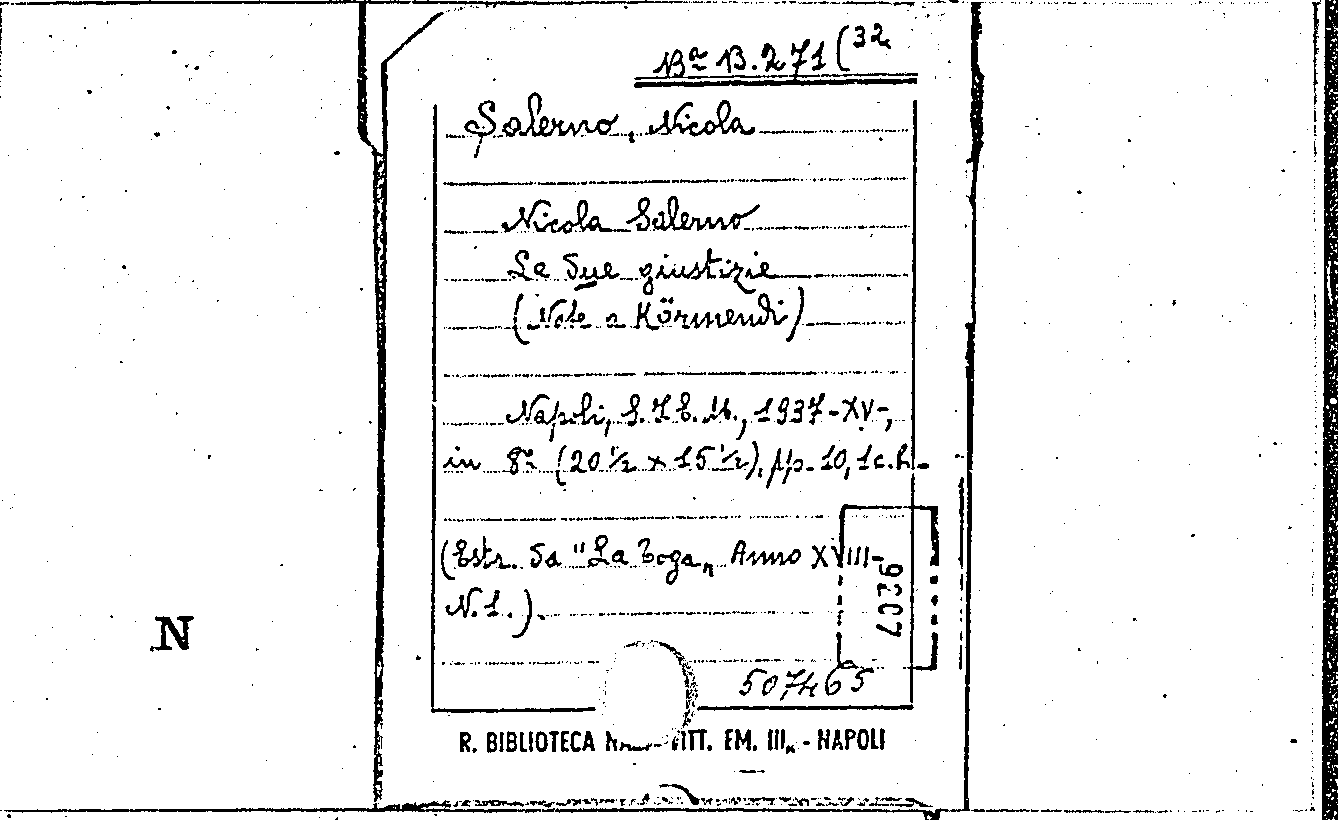 Bª B.271 (32
Salerno, Nicola
Nicola Salerno
Le due giustizie
(Note a Körmendi)
Napoli, S.I.E.M., 1937-XV-,
in 8º (20 ½ x 15 ½), pp. 10, 1 c. b.
(Estr. da "La Toga„ Anno XVIII-
N.1.).
9207
N
507465
R. BIBLIOTECA VITT. EM. III„ - NAPOLI